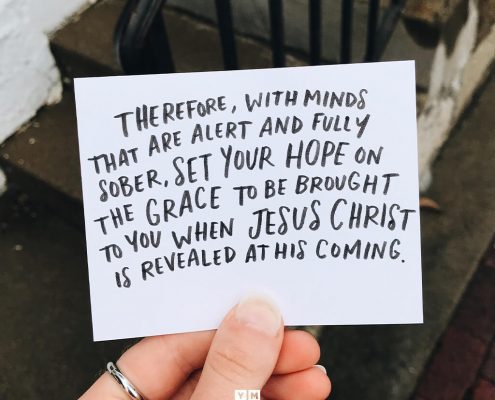 THEREFORE, WITH MINDS
THAT ARE ALERT AND FULLY
SOBER, SET YOUR HOPE ON
THE GRACE TO BE BROUGHT
TO YOU WHEN JESUS CHRIST
IS REVEALED AT HIS COMING.
Y M